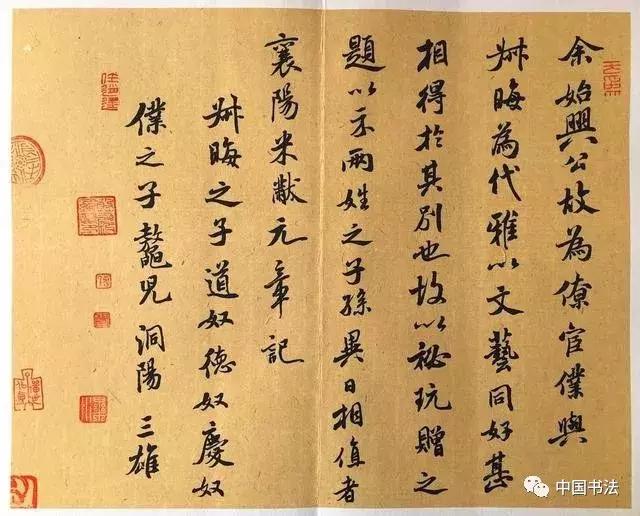 余始興公故為僚宦僕與
叔晦為代雅以文藝同好甚
相得於其別也故以祕玩贈之
題以示兩姓之子孫異日相值者
襄陽米黻元章記
叔晦之子道奴德奴慶奴
僕之子鼇兒洞陽三雄
中国书法